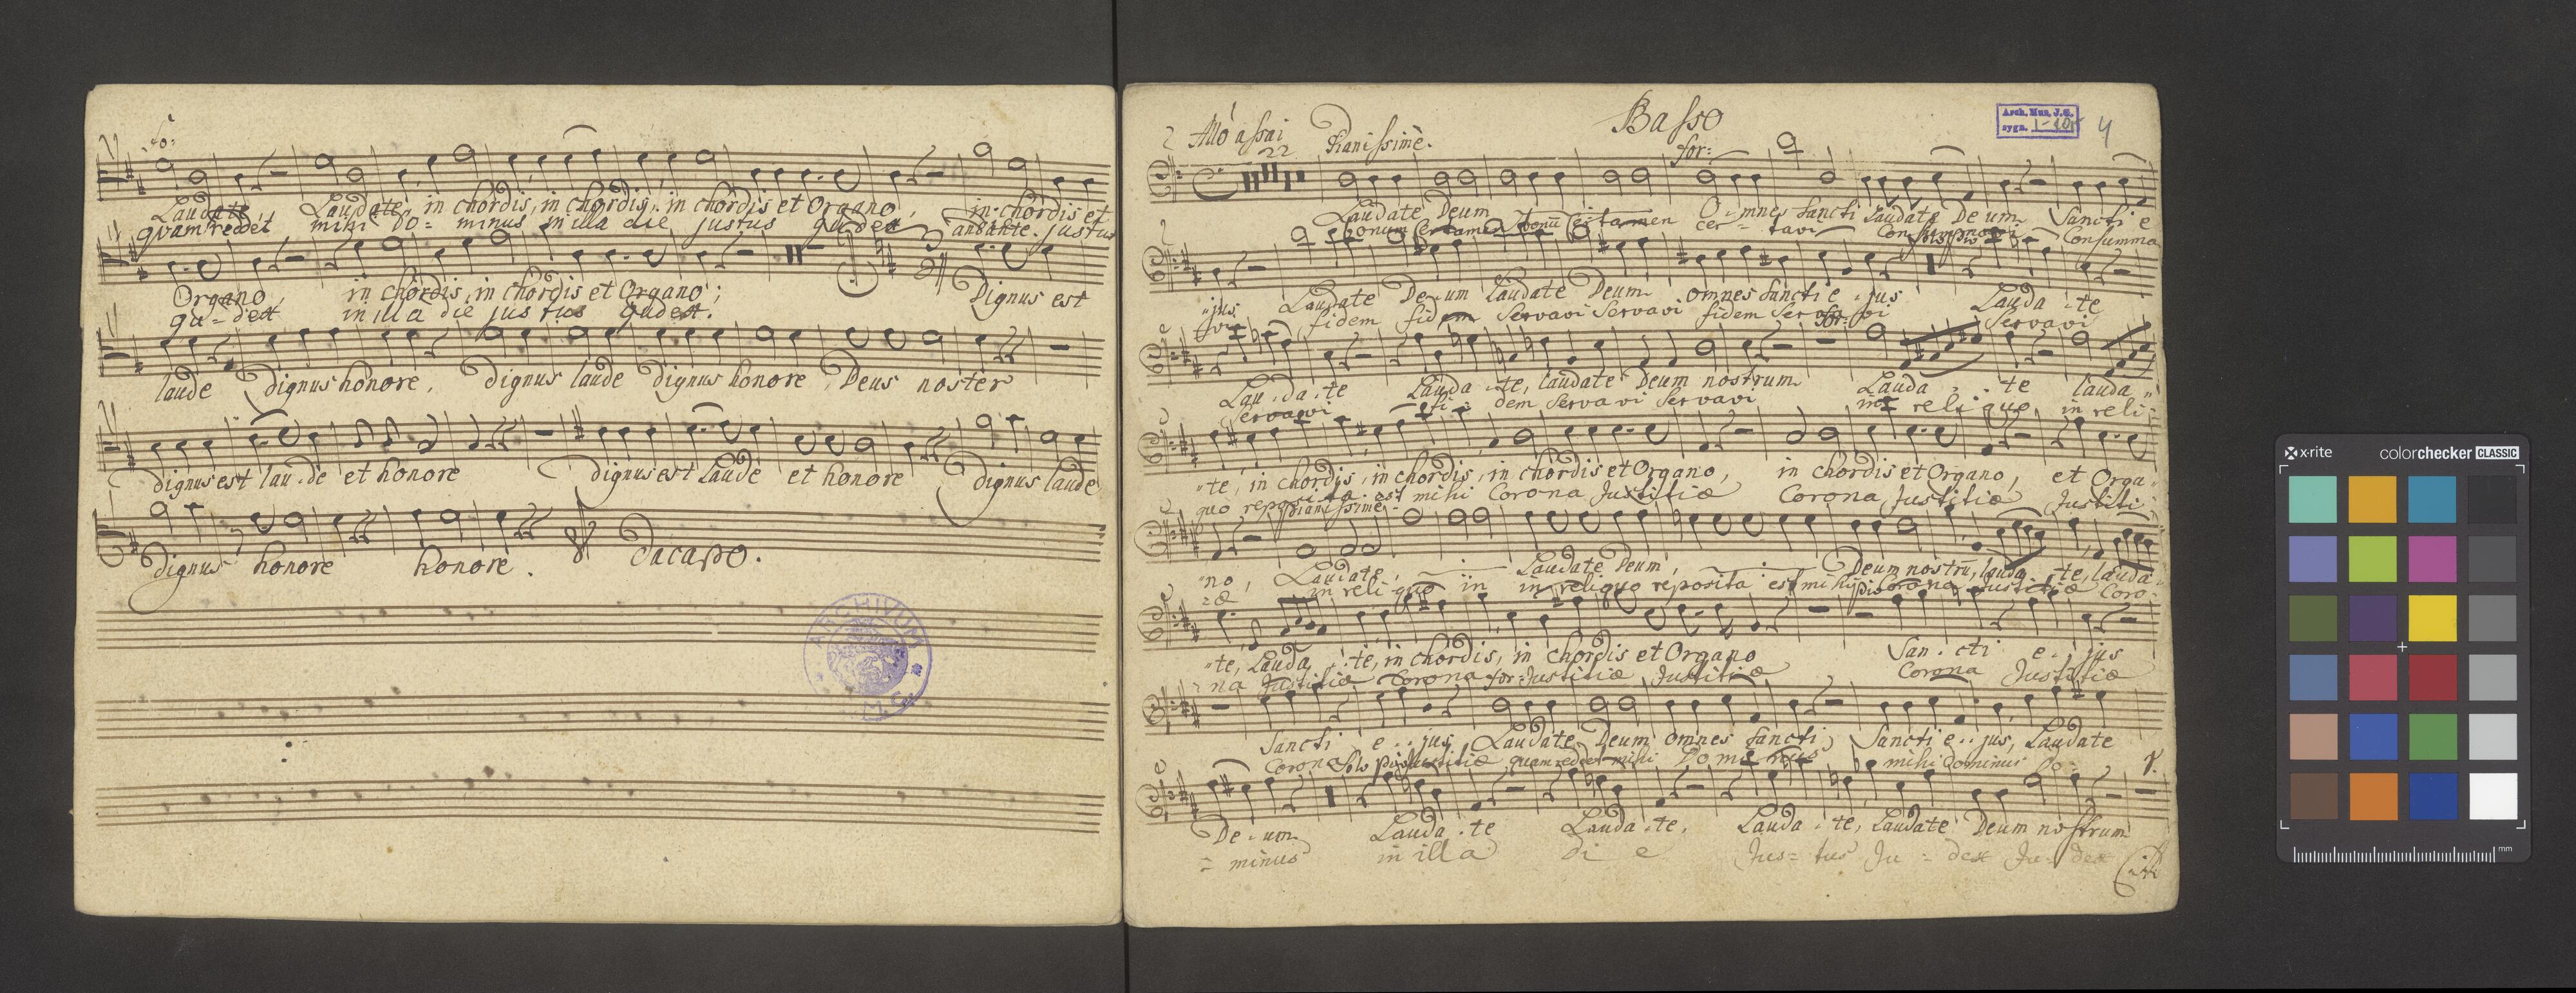 fo:
Laudate, Laudate, in chordis, in chordis, in chordis et Organo, in chordis et
quam reddet mihi Do= minus in illa die justus judex justus
andante.
Organo, in chordis, in chordis et Organo; Dignus est
ju=dex in illa die justus judex.
laude dignus honore, dignus laude dignus honore, Deus noster
dignus est lau.de et honore dignus est Laude et honore dignus laude
dignus honore honore. Dacapo.
ARCHIVUM
Basso
Arch. Mus. J.G.
sygn. I-
4
Allo assai Pianissime. for:
22
Laudate Deum O-mnes Sancti Laudate Deum Sancti e
bonum Certamen bonū Certamen cer = tavi Consummavi Consumma
"jus Laudate De-um Laudate Deum omnes Sancti e-jus Lauda-te
fidem fidem Servavi Servavi fidem Servavi Servavi
for:
Lau-da-te Lauda-te, laudate Deum nostrum Lauda - - te lauda"
Servavi fi = dem Servavi Servavi in reliquo in reli=
"te, in chordis, in chordis, in chordis et Organo, in chordis et Organo, et Orga"
quo reposita est mihi Corona Justitiæ Corona Justitiæ Justiti
pianissime
"no, Laudate, Laudate Deum, Deum nostrū, lauda-te, lauda"
in reliquo in in reliquo reposita est mihi Corona Justitiæ Coro-
"te, Lauda-te, in chordis, in chordis et Organo San-cti e-jus
na Justitiæ Corona Justitiæ Justitiæ Corona Justitiæ
for:
Sancti e-jus, Laudate Deum omnes Sancti, Sancti e-jus, Laudate
Corona Justitiæ quam reddet mihi Dominus mihi Dominus Do=
Solo
De-um Lauda-te Lauda-te, Lauda-te, Laudate Deum nostrum
= minus in illa di e Jus= tus Ju = dex Ju-dex
x-rite colorchecker CLASSIC
mm